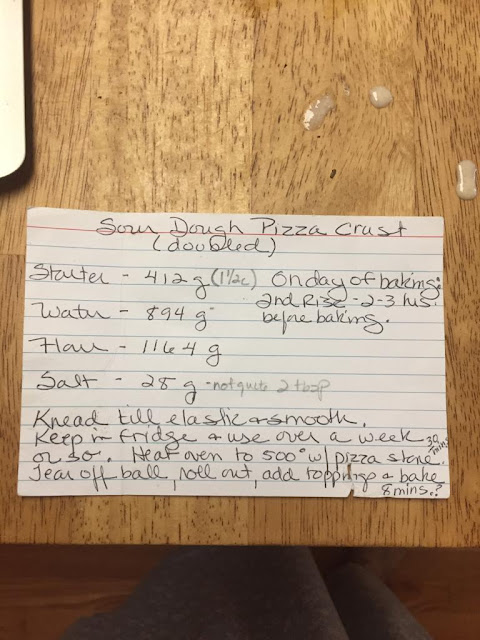 Sour Dough Pizza Crust
(doubled)
Starter - 412 g (1 1/2 c) On day of baking:
2nd Rise - 2-3 hrs.
Water - 894 g before baking.
Flour - 1164 g
Salt - 28 g - not quite 2 tbsp
Knead till elastic & smooth.
Keep in fridge & use over a week
or so. Heat oven to 500° w/ pizza stone. 30 mins
Tear off ball, roll out, add toppings & bake
8 mins.?